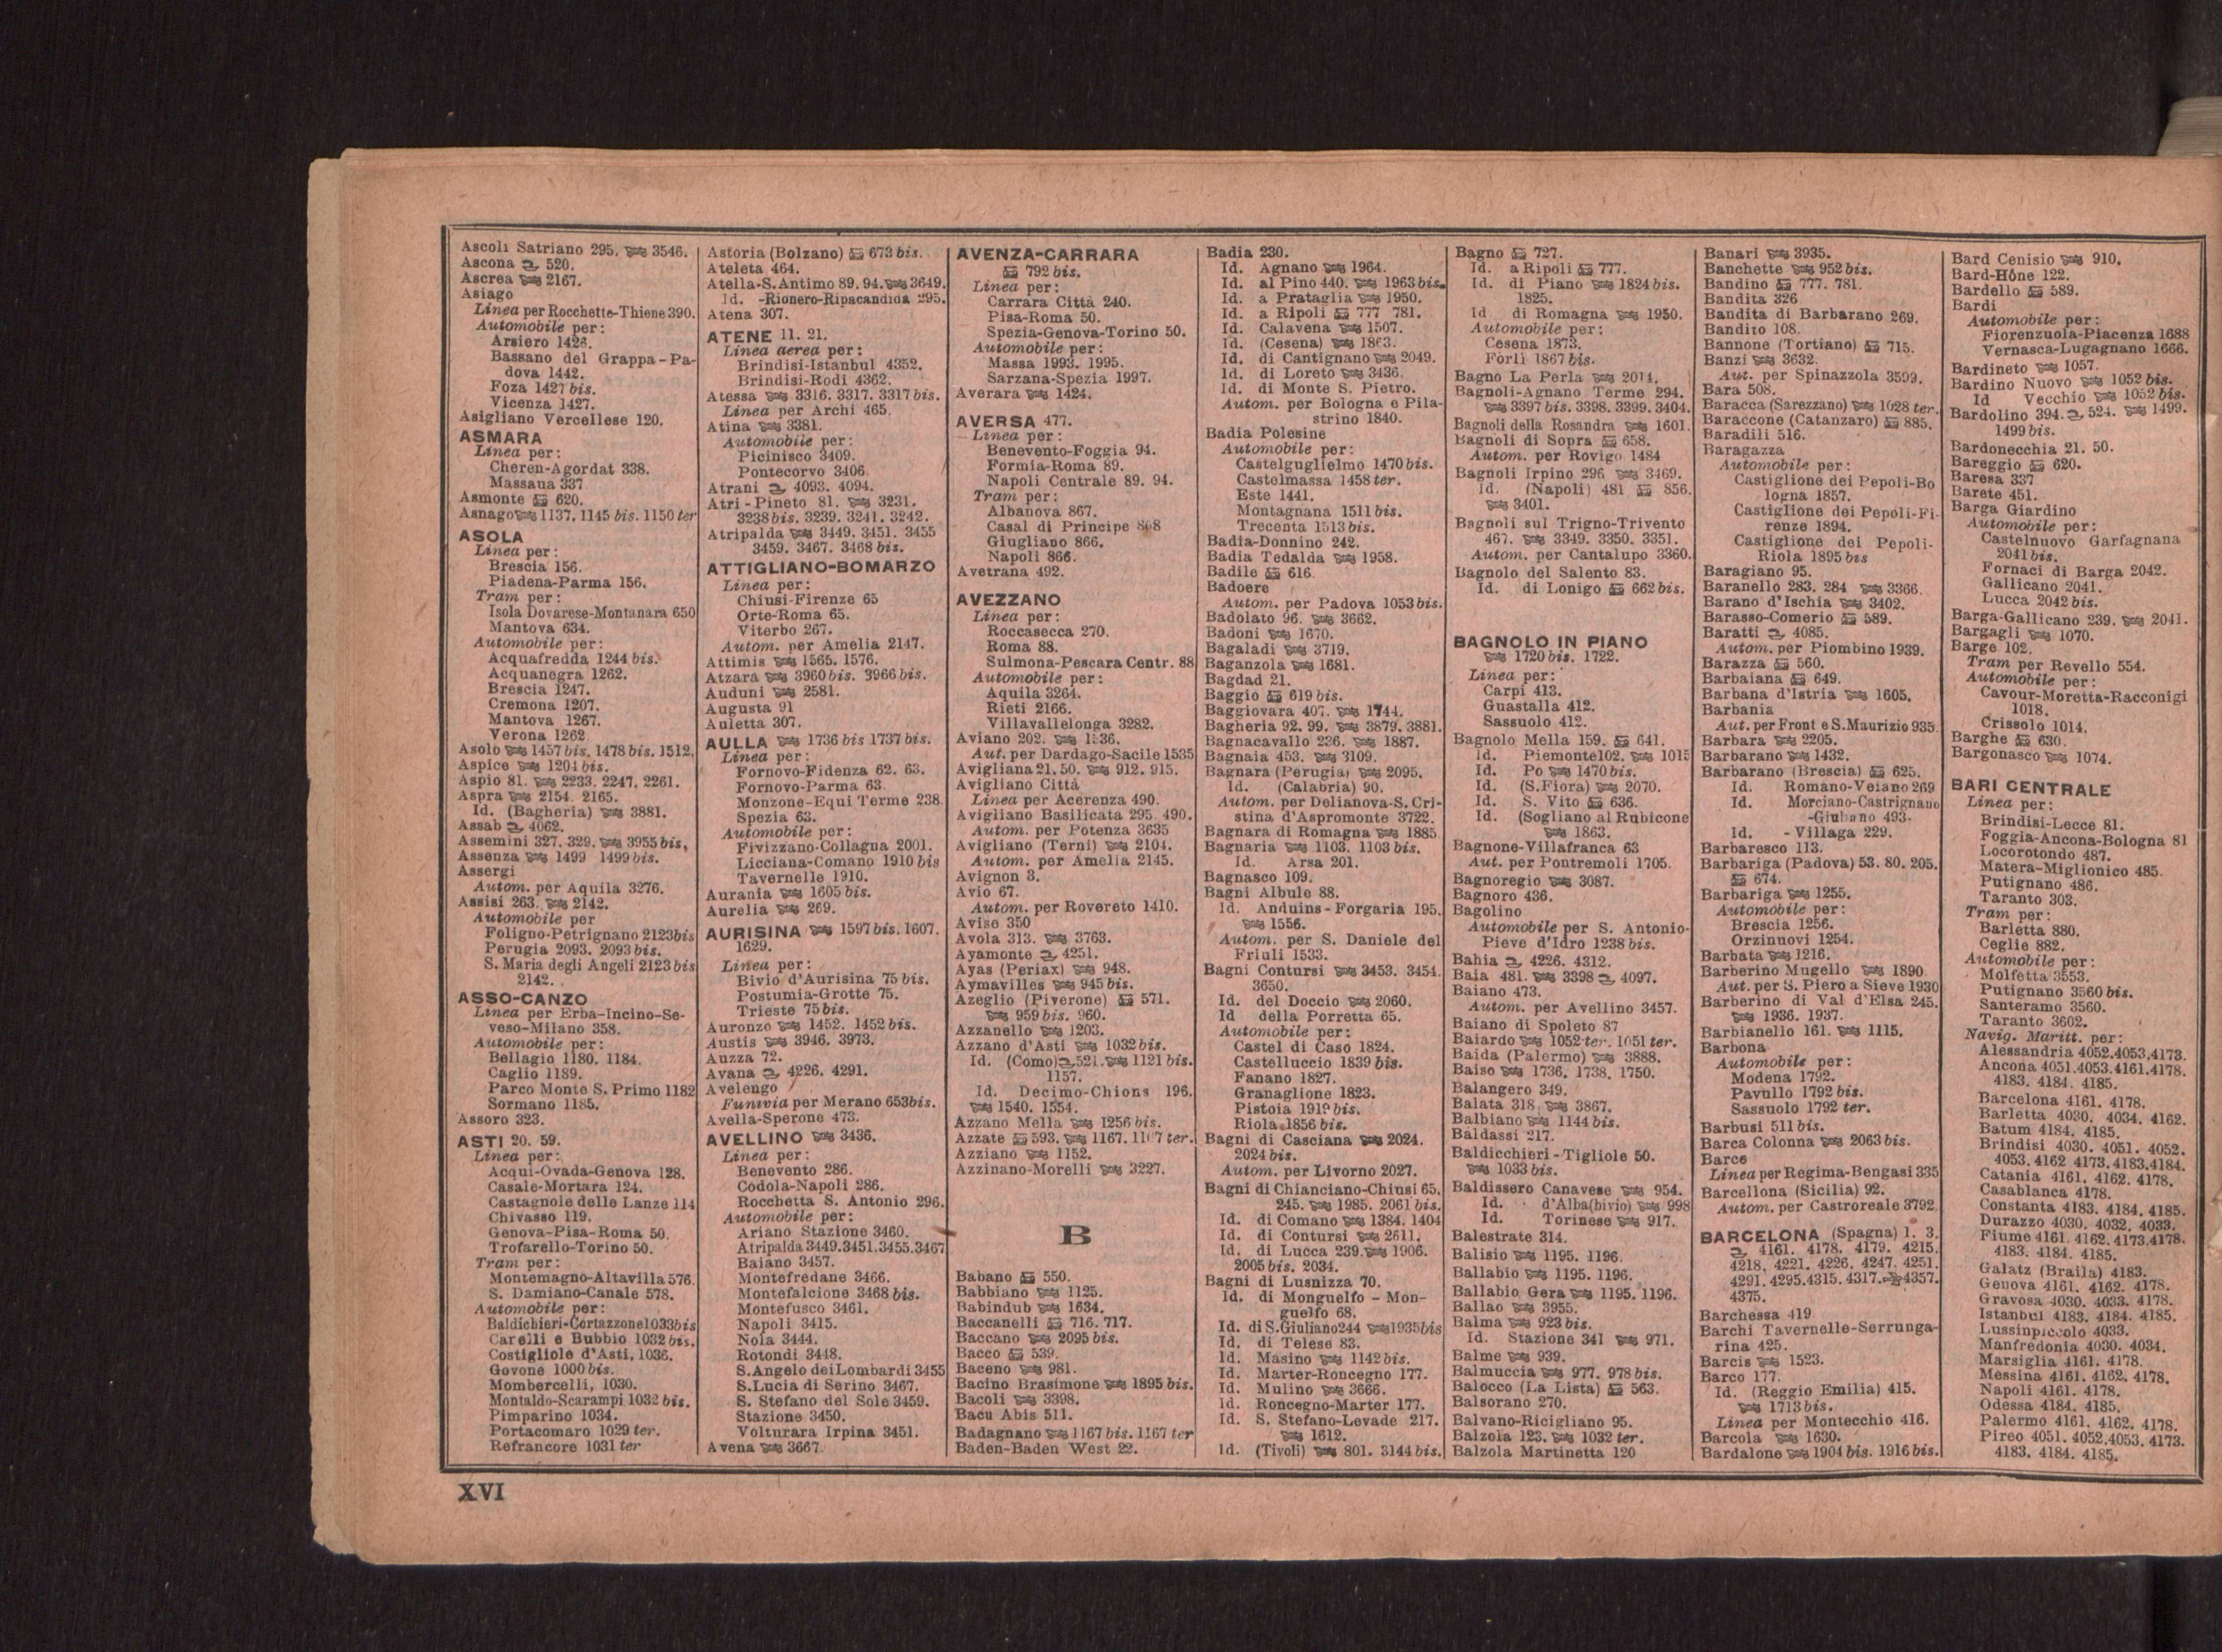 Ascoli Satriano 295. 3546.
Ascona 520.
Ascrea 2167.
Asiago
Linea per Rocchette-Thiene 390.
Automobile per:
Arsiero 1426.
Bassano del Grappa-Pa-
dova 1442.
Foza 1427 bis.
Vicenza 1427.
Asigliano Vercellese 120.
ASMARA
Linea per:
Cheren-Agordat 338.
Massaua 337
Asmonte 620.
Asnago 1137. 1145 bis. 1150 ter
ASOLA
Linea per:
Brescia 156.
Piadena-Parma 156.
Tram per:
Isola Dovarese-Montanara 650
Mantova 634.
Automobile per:
Acquafredda 1244 bis.
Acquanegra 1262.
Brescia 1247.
Cremona 1207.
Mantova 1267.
Verona 1262
Asolo 1457 bis. 1478 bis. 1512.
Aspice 1204 bis.
Aspio 81. 2233. 2247. 2261.
Aspra 2154. 2165.
Id. (Bagheria) 3881.
Assab 4062.
Assemini 327. 329. 3955 bis,
Assenza 1499 1499 bis.
Assergi
Autom. per Aquila 3276.
Assisi 263. 2142.
Automobile per
Foligno-Petrignano 2123bis
Perugia 2093. 2093 bis.
S. Maria degli Angeli 2123 bis
2142.
ASSO-CANZO
Linea per Erba-Incino-Se-
veso-Milano 358.
Automobile per:
Bellagio 1180. 1184.
Caglio 1189.
Parco Monte S. Primo 1182
Sormano 1185.
Assoro 323.
ASTI 20. 59.
Linea per:
Acqui-Ovada-Genova 128.
Casale-Mortara 124.
Castagnole delle Lanze 114
Chivasso 119.
Genova-Pisa-Roma 50.
Trofarello-Torino 50.
Tram per:
Montemagno-Altavilla 576.
S. Damiano-Canale 578.
Automobile per:
Baldichieri-Cortazzone1033bis
Carelli e Bubbio 1032 bis.
Costigliole d'Asti, 1036.
Govone 1000 bis.
Mombercelli, 1030.
Montaldo-Scarampi 1032 bis.
Pimparino 1034.
Portacomaro 1029 ter.
Refrancore 1031 ter
Astoria (Bolzano) 673 bis.
Ateleta 464.
Atella-S. Antimo 89. 94. 3649.
Id. -Rionero-Ripacandida 295.
Atena 307.
ATENE 11. 21.
Linea aerea per:
Brindisi-Istanbul 4352.
Brindisi-Rodi 4362.
Atessa 3316. 3317. 3317 bis.
Linea per Archi 465.
Atina 3381.
Automobile per:
Picinisco 3409.
Pontecorvo 3406
Atrani 4093. 4094.
Atri-Pineto 81. 3231.
3238 bis. 3239. 3241. 3242.
Atripalda 3449. 3451. 3455
3459. 3467. 3468 bis.
ATTIGLIANO-BOMARZO
Linea per:
Chiusi-Firenze 65
Orte-Roma 65.
Viterbo 267.
Autom. per Amelia 2147.
Attimis 1565. 1576.
Atzara 3960 bis. 3966 bis.
Auduni 2581.
Augusta 91
Auletta 307.
AULLA 1736 bis 1737 bis.
Linea per:
Fornovo-Fidenza 62. 63.
Fornovo-Parma 63
Monzone-Equi Terme 238.
Spezia 63.
Automobile per:
Fivizzano-Collagna 2001.
Licciana-Comano 1910 bis
Tavernelle 1910.
Aurania 1605 bis.
Aurelia 269.
AURISINA 1597 bis. 1607.
1629.
Linea per:
Bivio d'Aurisina 75 bis.
Postumia-Grotte 75.
Trieste 75bis.
Auronzo 1452. 1452 bis.
Austis 3946. 3973.
Auzza 72.
Avana 4226. 4291.
Avelengo
Funivia per Merano 653bis.
Avella-Sperone 473.
AVELLINO 3436.
Linea per:
Benevento 286.
Codola-Napoli 286.
Rocchetta S. Antonio 296.
Automobile per:
Ariano Stazione 3460.
Atripalda 3449.3451.3455.3467
Baiano 3457.
Montefredane 3466.
Montefalcione 3468 bis.
Montefusco 3461.
Napoli 3415.
Nola 3444.
Rotondi 3448.
S.Angelo dei Lombardi 3455
S.Lucia di Serino 3467.
S. Stefano del Sole 3459.
Stazione 3450.
Volturara Irpina 3451.
Avena 3667.
AVENZA-CARRARA
792 bis.
Linea per:
Carrara Città 240.
Pisa-Roma 50.
Spezia-Genova-Torino 50.
Automobile per:
Massa 1993. 1995.
Sarzana-Spezia 1997.
Averara 1424.
AVERSA 477.
Linea per:
Benevento-Foggia 94.
Formia-Roma 89.
Napoli Centrale 89. 94.
Tram per:
Albanova 867.
Casal di Principe 868
Giugliano 866.
Napoli 866.
Avetrana 492.
AVEZZANO
Linea per:
Roccasecca 270.
Roma 88.
Sulmona-Pescara Centr. 88
Automobile per:
Aquila 3264.
Rieti 2166.
Villavallelonga 3282.
Aviano 202. 1536.
Aut. per Dardago-Sacile 1535
Avigliana 21. 50. 912. 915.
Avigliano Città
Linea per Acerenza 490.
Avigliano Basilicata 295 490.
Autom. per Potenza 3635
Avigliano (Terni) 2104.
Autom. per Amelia 2145.
Avignon 3.
Avio 67.
Autom. per Rovereto 1410.
Avise 350
Avola 313. 3763.
Ayamonte 4251.
Ayas (Periax) 948.
Aymavilles 945 bis.
Azeglio (Piverone) 571.
959 bis. 960.
Azzanello 1203.
Azzano d'Asti 1032 bis.
Id. (Como) 521. 1121 bis.
1157.
Id. Decimo-Chions 196.
1540. 1554.
Azzano Mella 1256 bis.
Azzate 593. 1167. 1167 ter.
Azziano 1152.
Azzinano-Morelli 3227.
B
Babano 550.
Babbiano 1125.
Babindub 1634.
Baccanelli 716. 717.
Baccano 2095 bis.
Bacco 539.
Baceno 981.
Bacino Brasimone 1895 bis.
Bacoli 3398.
Bacu Abis 511.
Badagnano 1167 bis. 1167 ter
Baden-Baden West 22.
Badia 230.
Id. Agnano 1964.
Id. al Pino 440. 1963 bis.
Id. a Prataglia 1950.
Id. a Ripoli 777 781.
Id. Calavena 1507.
Id. (Cesena) 1863.
Id. di Cantignano 2049.
Id. di Loreto 3436.
Id. di Monte S. Pietro.
Autom. per Bologna e Pila-
strino 1840.
Badia Polesine
Automobile per:
Castelguglielmo 1470 bis.
Castelmassa 1458 ter.
Este 1441.
Montagnana 1511 bis.
Trecenta 1513 bis.
Badia-Donnino 242.
Badia Tedalda 1958.
Badile 616
Badoere
Autom. per Padova 1053 bis.
Badolato 96. 3662.
Badoni 1670.
Bagaladi 3719.
Baganzola 1681.
Bagdad 21.
Baggio 619 bis.
Baggiovara 407. 1744.
Bagheria 92. 99. 3879. 3881.
Bagnacavallo 236. 1887.
Bagnaia 453. 3109.
Bagnara (Perugia) 2095.
Id. (Calabria) 90.
Autom. per Delianova-S. Cri-
stina d'Aspromonte 3722.
Bagnara di Romagna 1885
Bagnaria 1103. 1103 bis.
Id. Arsa 201.
Bagnasco 109.
Bagni Albule 88.
Id. Anduins-Forgaria 195.
1556.
Autom. per S. Daniele del
Friuli 1533.
Bagni Contursi 3453. 3454.
3650.
Id. del Doccio 2060.
Id della Porretta 65.
Automobile per:
Castel di Caso 1824.
Castelluccio 1839 bis.
Fanano 1827.
Granaglione 1823.
Pistoia 1919 bis.
Riola 1856 bis.
Bagni di Casciana 2024.
2024 bis.
Autom. per Livorno 2027.
Bagni di Chianciano-Chiusi 65.
245. 1985. 2061 bis.
Id. di Comano 1384. 1404
Id. di Contursi 2611.
Id. di Lucca 239. 1906.
2005 bis. 2034.
Bagni di Lusnizza 70.
Id. di Monguelfo - Mon-
guelfo 68.
Id. di S.Giuliano244 1935bis
Id. di Telese 83.
Id. Masino 1142 bis.
Id. Marter-Roncegno 177.
Id. Mulino 3666.
Id. Roncegno-Marter 177.
Id. S. Stefano-Levade 217.
1612.
Id. (Tivoli) 801. 3144 bis.
Bagno 727.
Id. a Ripoli 777.
Id. di Piano 1824 bis.
1825.
Id di Romagna 1950.
Automobile per:
Cesena 1873.
Forlì 1867 bis.
Bagno La Perla 2014.
Bagnoli-Agnano Terme 294.
3397 bis. 3398. 3399. 3404.
Bagnoli della Rosandra 1601.
Bagnoli di Sopra 658.
Autom. per Rovigo 1484
Bagnoli Irpino 296 3469.
Id. (Napoli) 481 856.
3401.
Bagnoli sul Trigno-Trivento
467. 3349. 3350. 3351.
Autom. per Cantalupo 3360.
Bagnolo del Salento 83.
Id. di Lonigo 662 bis.
BAGNOLO IN PIANO
1720 bis. 1722.
Linea per:
Carpi 413.
Guastalla 412.
Sassuolo 412.
Bagnolo Mella 159. 641.
Id. Piemonte102. 1015
Id. Po 1470 bis.
Id. (S.Fiora) 2070.
Id. S. Vito 636.
Id. (Sogliano al Rubicone
1863.
Bagnone-Villafranca 63
Aut. per Pontremoli 1705.
Bagnoregio 3087.
Bagnoro 436.
Bagolino
Automobile per S. Antonio-
Pieve d'Idro 1238 bis.
Bahia 4226. 4312.
Baia 481. 3398 4097.
Baiano 473.
Autom. per Avellino 3457.
Baiano di Spoleto 87
Baiardo 1052 ter. 1051 ter.
Baida (Palermo) 3888.
Baiso 1736. 1738. 1750.
Balangero 349.
Balata 318. 3867.
Balbiano 1144 bis.
Baldassi 217.
Baldicchieri-Tigliole 50.
1033 bis.
Baldissero Canavese 954.
Id. d'Alba(bivio) 998
Id. Torinese 917.
Balestrate 314.
Balisio 1195. 1196.
Ballabio 1195. 1196.
Ballabio Gera 1195. 1196.
Ballao 3955.
Balma 923 bis.
Id. Stazione 341 971.
Balme 939.
Balmuccia 977. 978 bis.
Balocco (La Lista) 563.
Balsorano 270.
Balvano-Ricigliano 95.
Balzola 123. 1032 ter.
Balzola Martinetta 120
Banari 3935.
Banchette 952 bis.
Bandino 777. 781.
Bandita 326
Bandita di Barbarano 269.
Bandito 108.
Bannone (Tortiano) 715.
Banzi 3632.
Aut. per Spinazzola 3599.
Bara 508.
Baracca (Sarezzano) 1028 ter.
Baraccone (Catanzaro) 885.
Baradili 516.
Baragazza
Automobile per:
Castiglione dei Pepoli-Bo
logna 1857.
Castiglione dei Pepoli-Fi-
renze 1894.
Castiglione dei Pepoli-
Riola 1895 bis
Baragiano 95.
Baranello 283. 284 3366
Barano d'Ischia 3402.
Barasso-Comerio 589.
Baratti 4085.
Autom. per Piombino 1939.
Barazza 560.
Barbaiana 649.
Barbana d'Istria 1605.
Barbania
Aut. per Front e S.Maurizio 935
Barbara 2205.
Barbarano 1432.
Barbarano (Brescia) 625.
Id. Romano-Veiano 269
Id. Morciano-Castrignano
-Giuliano 493.
Id. - Villaga 229.
Barbaresco 113.
Barbariga (Padova) 53. 80. 205.
674.
Barbariga 1255.
Automobile per:
Brescia 1256.
Orzinuovi 1254.
Barbata 1216.
Barberino Mugello 1890
Aut. per S. Piero a Sieve 1930
Barberino di Val d'Elsa 245.
1936. 1937.
Barbianello 161. 1115.
Barbona
Automobile per:
Modena 1792.
Pavullo 1792 bis.
Sassuolo 1792 ter.
Barbusi 511 bis.
Barca Colonna 2063 bis.
Barce
Linea per Regima-Bengasi 335
Barcellona (Sicilia) 92.
Autom. per Castroreale 3792
BARCELONA (Spagna) 1. 3.
4161. 4178. 4179. 4215.
4218. 4221. 4226. 4247. 4251.
4291. 4295.4315. 4317. 4357.
4375.
Barchessa 419
Barchi Tavernelle-Serrunga-
rina 425.
Barcis 1523.
Barco 177.
Id. (Reggio Emilia) 415.
1713 bis.
Linea per Montecchio 416.
Barcola 1630.
Bardalone 1904 bis. 1916 bis.
Bard Cenisio 910.
Bard-Hône 122.
Bardello 589.
Bardi
Automobile per:
Fiorenzuola-Piacenza 1688
Vernasca-Lugagnano 1666.
Bardineto 1057.
Bardino Nuovo 1052 bis.
Id Vecchio 1052 bis.
Bardolino 394. 524. 1499.
1499 bis.
Bardonecchia 21. 50.
Bareggio 620.
Baresa 337
Barete 451.
Barga Giardino
Automobile per:
Castelnuovo Garfagnana
2041 bis.
Fornaci di Barga 2042.
Gallicano 2041.
Lucca 2042 bis.
Barga-Gallicano 239. 2041.
Bargagli 1070.
Barge 102.
Tram per Revello 554.
Automobile per:
Cavour-Moretta-Racconigi
1018.
Crissolo 1014.
Barghe 630.
Bargonasco 1074.
BARI CENTRALE
Linea per:
Brindisi-Lecce 81.
Foggia-Ancona-Bologna 81
Locorotondo 487.
Matera-Miglionico 485.
Putignano 486.
Taranto 303.
Tram per:
Barletta 880.
Ceglie 882.
Automobile per:
Molfetta 3553.
Putignano 3560 bis.
Santeramo 3560.
Taranto 3602.
Navig. Maritt. per:
Alessandria 4052.4053.4173.
Ancona 4051.4053.4161.4178.
4183. 4184. 4185.
Barcelona 4161. 4178.
Barletta 4030. 4034. 4162.
Batum 4184. 4185.
Brindisi 4030. 4051. 4052.
4053. 4162 4173.4183.4184.
Catania 4161. 4162. 4178.
Casablanca 4178.
Constanta 4183. 4184. 4185.
Durazzo 4030. 4032. 4033.
Fiume 4161. 4162.4173.4178.
4183. 4184. 4185.
Galatz (Braila) 4183.
Genova 4161. 4162. 4178.
Gravosa 4030. 4033. 4178.
Istanbul 4183. 4184. 4185.
Lussinpiccolo 4033.
Manfredonia 4030. 4034.
Marsiglia 4161. 4178.
Messina 4161. 4162. 4178.
Napoli 4161. 4178.
Odessa 4184. 4185.
Palermo 4161. 4162. 4178.
Pireo 4051. 4052.4053. 4173.
4183. 4184. 4185.
XVI